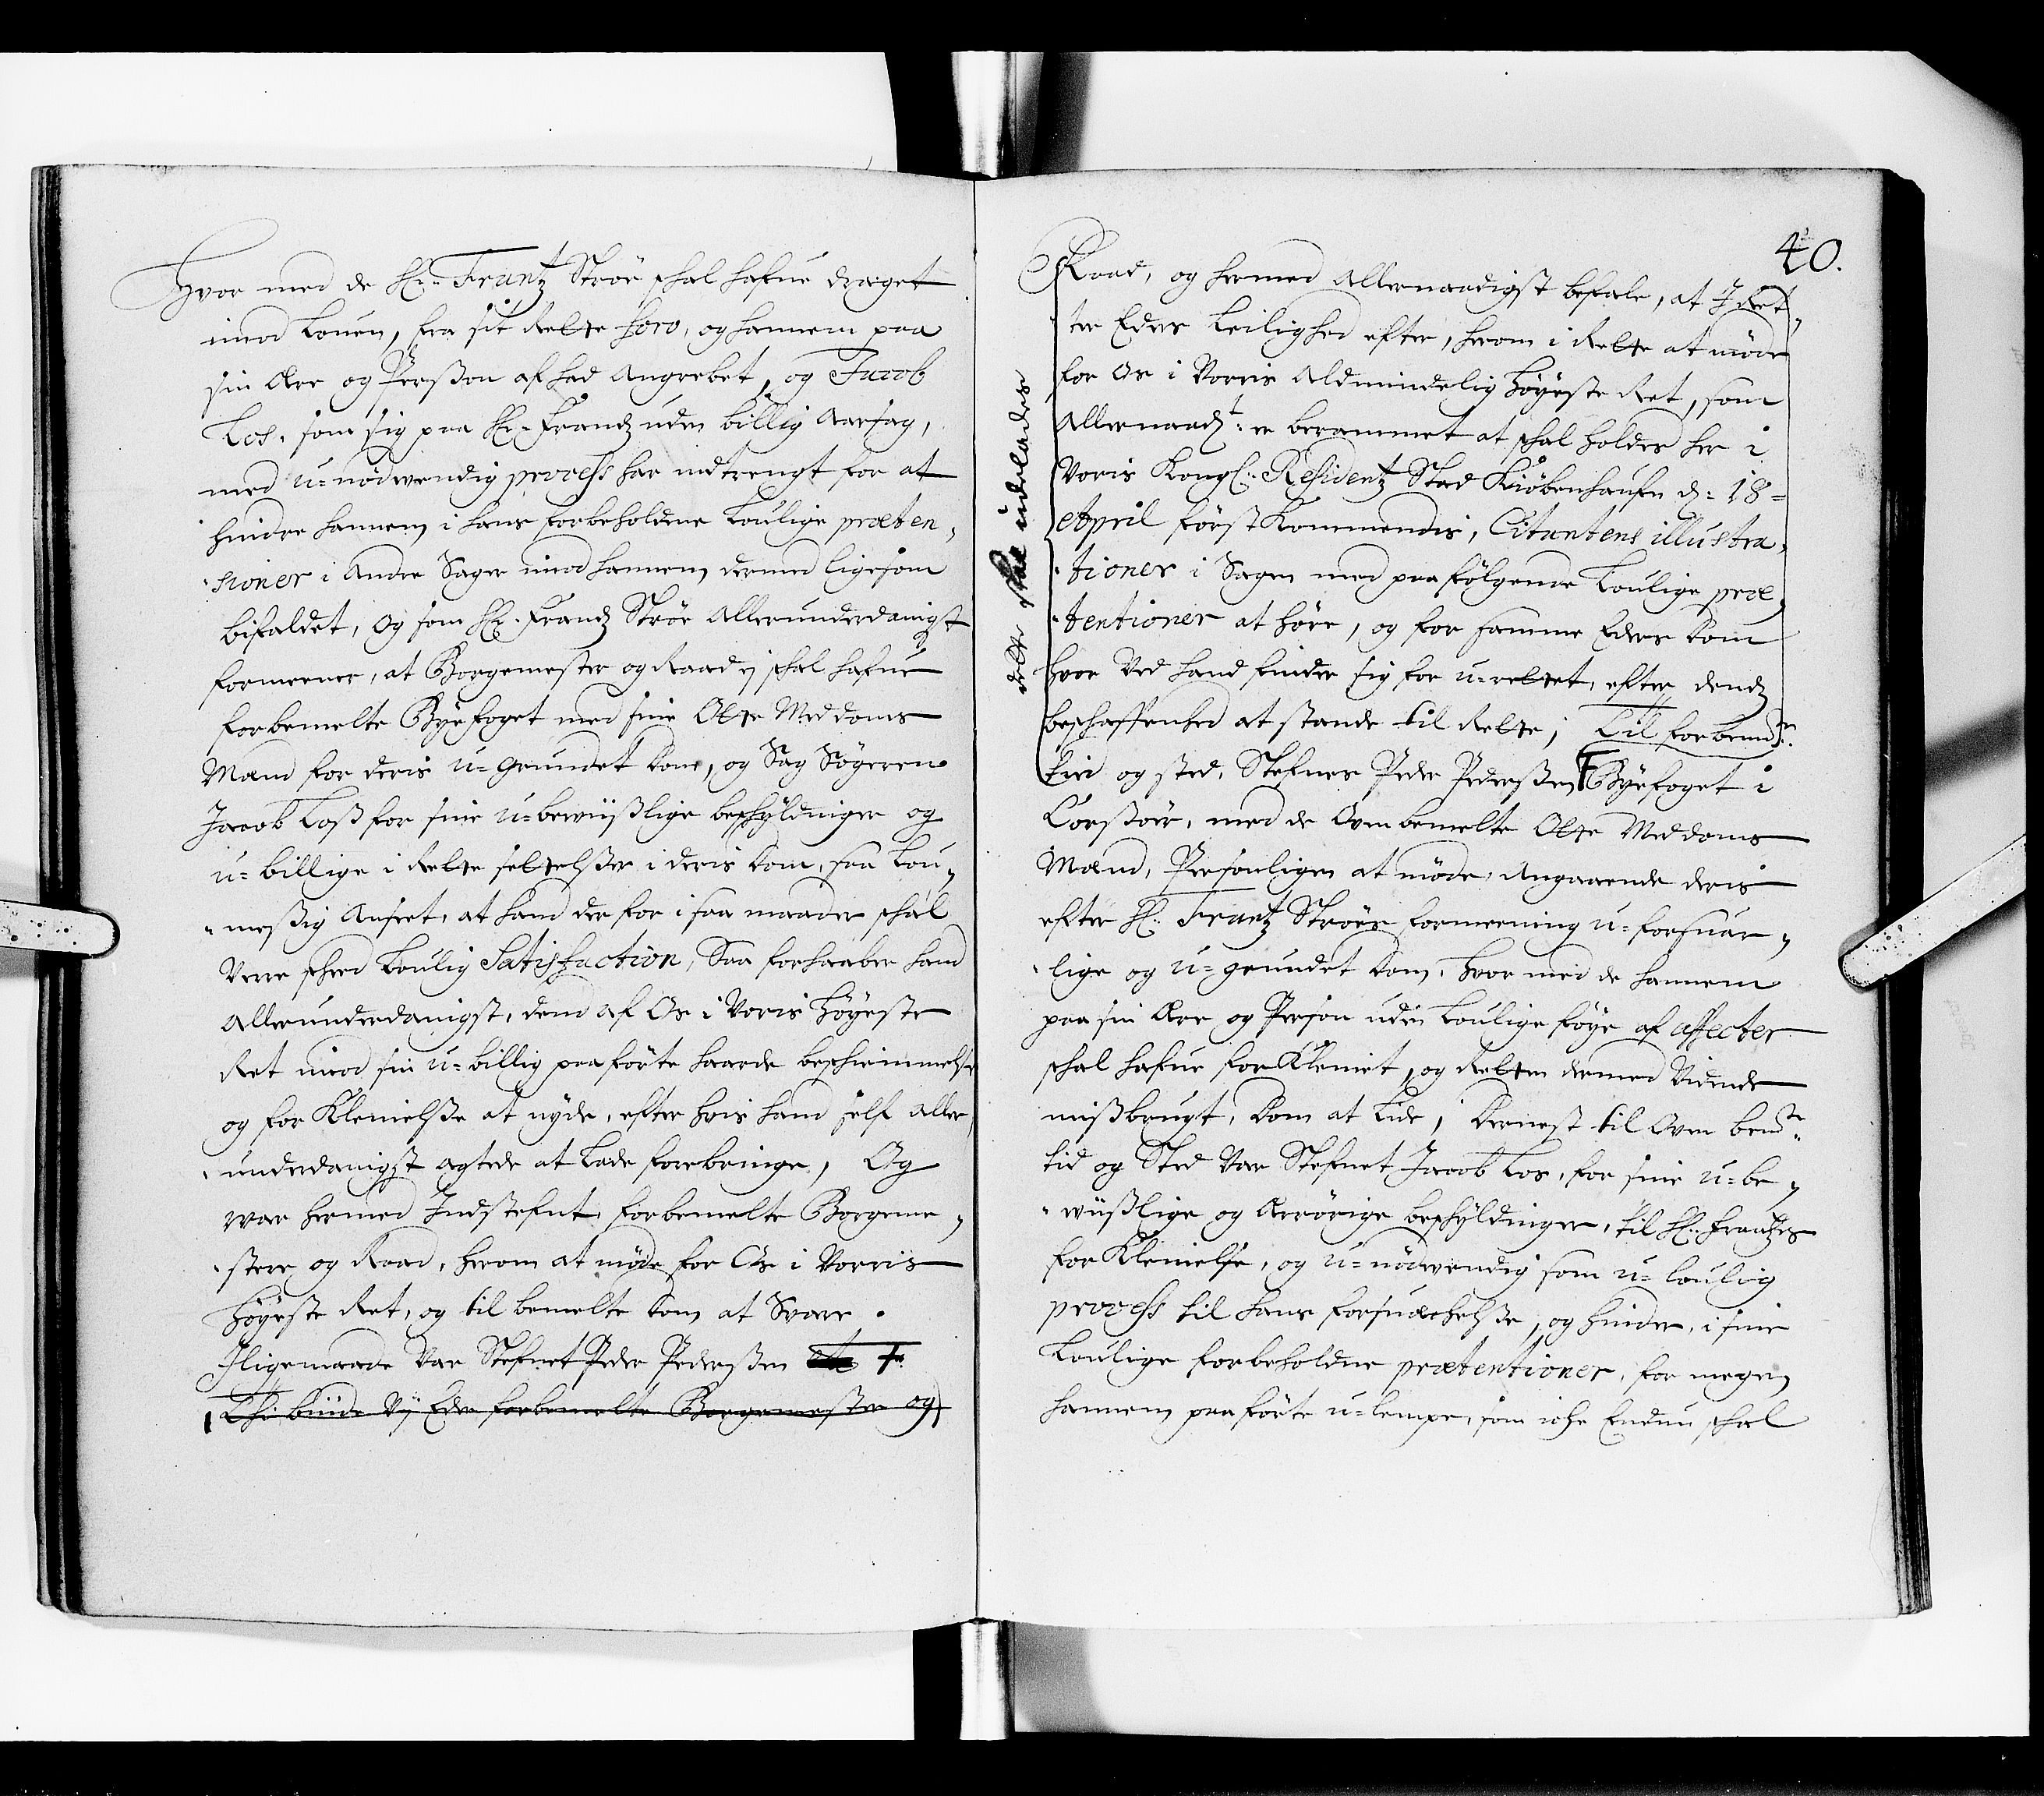 Hvor med de Hr. Frantz Ströe schal hafue draget
imod Louen, fra sit Rette foro, og hannem paa
sin Ære og Perßon af had Angrebet, og Jacob
Los, som sig paa Hr. Frandz uden billig Aarsag,
med u=nödvendig process har indtrengt for at
hindre hannem i hans forbeholdne Loulige præten,
sioner i Andre Sager imod hannem, dermed ligesom
bifaldet, Og som Hr. Frandz Ströe Allerunderdanigst
formeener, at Borgemester og Raad ej schal hafue
forbemelte Byefoget med sine Otte Meddoms
Mænd for deris u=grundet Dom, og Sag Søgeren
Jacob Loß for sine u=bewiißlige beschyldninger og
u=billige i Rette settelßer i deris Dom, saa Lou,
meßig Anseet, at hand der for i saa maader schal
Vere scheed Loulig Satisfaction, Saa forhaaber hand
Allerunderdanigst, dend af Os i Voris Høyeste
Ret imod sin u=billig paaførte haarde beschiemmelse
og for Klenelße at nyde, efter hvis hand self Aller,
underdanigst agtede at Lade forebringe, Og
war hermed Indstefnt forbemelte Borgeme,
stere og Raad, herom at møde for Os i Vorris
Høyeste Ret, og til bemelte Dom at Svare.
Iligemaade Var Stefnet Peder Pederßen
Thi biude Vj Eder forbemelte Borgemester og
40.
Raad, og hermed Allernaadigst befale, at I Ret,
ter Eders Leilighed efter, herom i Rette at møde
for Os i Vorris Aldmindelig Høyeste Ret, som
Allernaadt: er berammet at schal holdes her i
Voris Kongl: Residentz Stad Kiøbenhaufn d: 18=
April først Kommendis, Citantens illustra,
tioner i Sagen med paafølgende Loulige præ,
tentioner at høre, og for samme Eders Dom
hvor Ved hand finder sig for u=rettet, efter dends
beschaffenhed at stande til Rette; Til forbemte:
tid og sted, Stefnes Peder Pederßen Byefoget i
Corßøer, med de Oven bemelte Otte Meddoms
Mænd, Personligen at møde, Angaaende deris
efter Hr: Frantz Ströes formeening u=forsuar,
lige og u=grundet Dom, hvor med de hannem
paa sin Ære og Person uden Loulige føye af affecter
schal hafue forKlenet, og Retten dermed Vidende
mißbrugt, Dom at Lide; Dernest til Oven bemte:
tid og Sted Var Stefnet Jacob Los, for sine u=be,
wiißlige og Ærrørige beschyldinger, til Hr: Frantzes
for Klenelse, og u=nødvendig som u=loulig
process til hans forsuæchelße, og hinder, i sine
Loulige forbeholdne prætentioner, for megen
hannem paaførte u=lempe, som iche Endnu schal
dette skal udelades